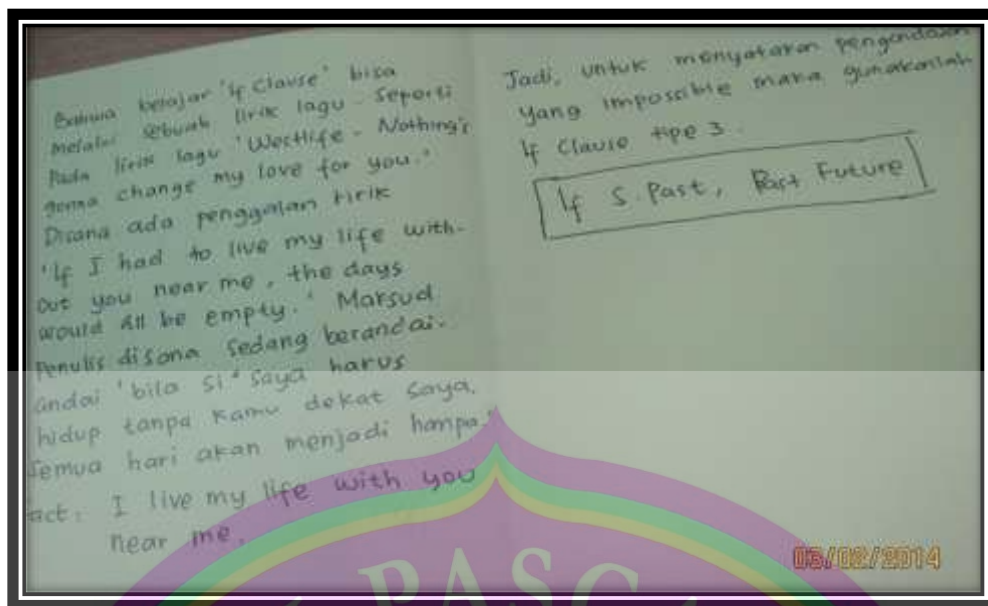 Bahwa belajar 'If Clause' bisa
melalui sebuah lirik lagu. Seperti
Pada lirik lagu 'Westlife - Nothing's
gonna change my love for you.'
Disana ada penggalan lirik
'If I had to live my life with-
out you near me, the days
would all be empty.' Maksud
Penulis disana sedang berandai-
andai 'bila si' saya harus
hidup tanpa kamu dekat saya,
semua hari akan menjadi hampa.'
Fact: I live my life with you
near me.
Jadi, untuk menyatakan pengandaian
yang impossible maka gunakanlah
If Clause tipe 3.
If S. Past, Past Future
03/02/2014
PASC